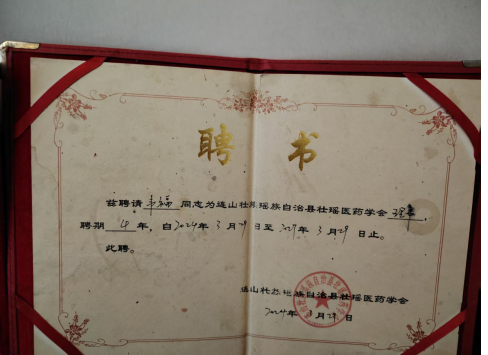 聘书
兹聘请 同志为连山壮族瑶族自治县壮瑶医药学会 理事,
聘期 4 年,自2024年3月29日至2027年3月29日止。
此聘。
连山壮族瑶族自治县壮瑶医药学会
2024年3月29日